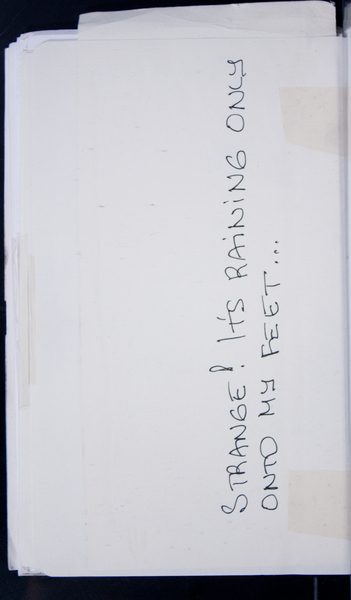 STRANGE! It'S RAiNiNG ONLY
ONTO MY FEET...